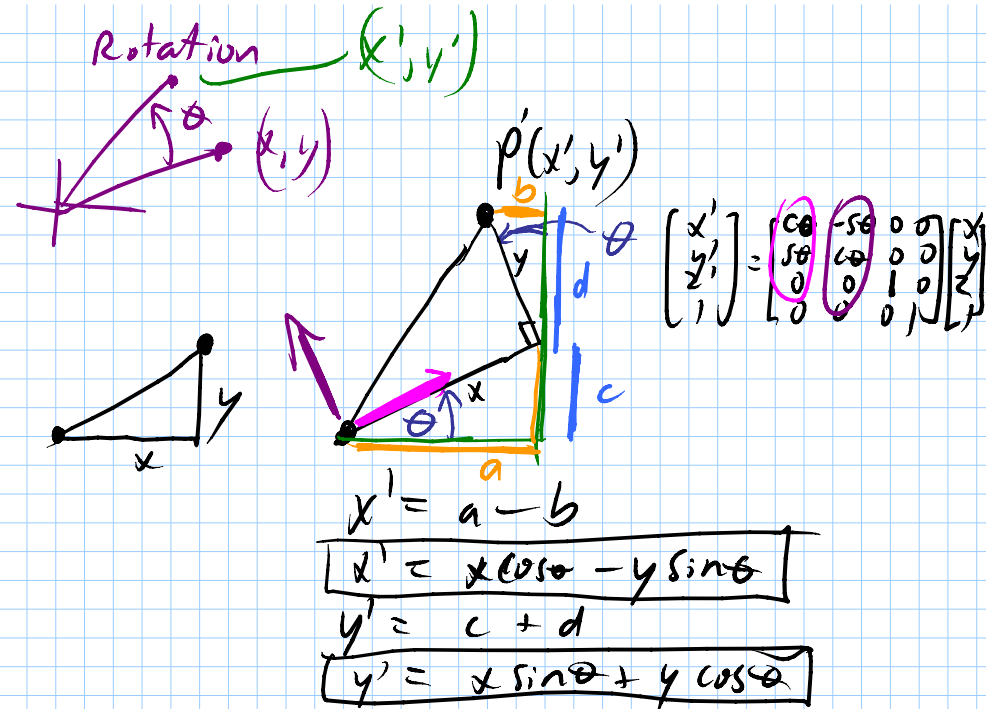 Rotation
(x', y')
θ
(x, y)
P'(x', y')
b
θ
y
d
x
c
θ
a
y
x
[x'] = [cθ -sθ 0 0] [x]
[y'] [sθ cθ 0 0] [y]
[z'] [0 0 1 0] [z]
[1] [0 0 0 1] [1]
x' = a - b
x' = x cosθ - y sinθ
y' = c + d
y' = x sinθ + y cosθ